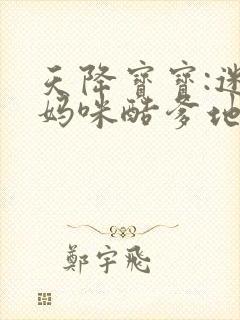 天降寶寶:迷
媽咪酷爹地
鄭宇飛